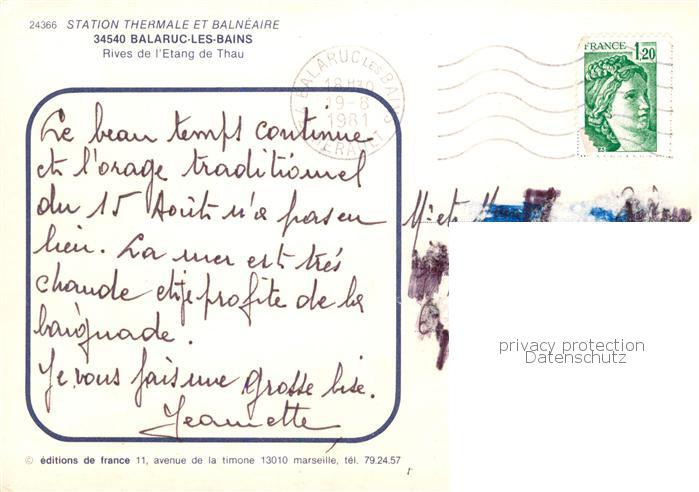 24366 STATION THERMALE ET BALNÉAIRE
34540 BALARUC-LES-BAINS
Rives de l'Etang de Thau
BALARUC LES BAINS
18 H30
19-8
1981
HERAULT
FRANCE 1,20
Le beau temps continue
et l'orage traditionnel
du 15 Août n'a pas eu
lieu. La mer est très
chaude et je profite de la
baignade.
Je vous fais une grosse bise.
Jeannette
M. et
privacy protection
Datenschutz
© éditions de france 11, avenue de la timone 13010 marseille, tél. 79.24.57